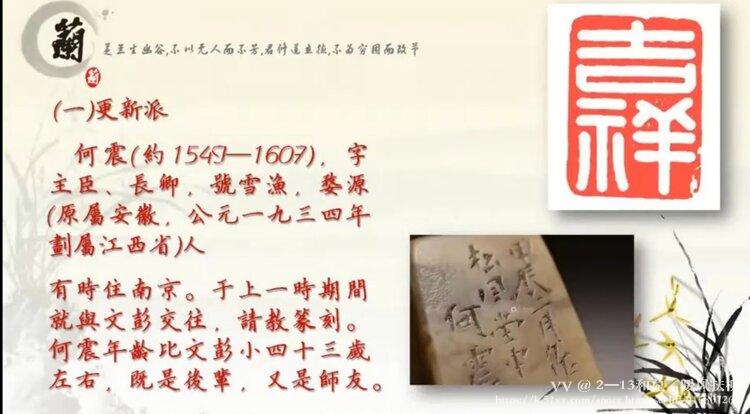 蘭
芝蘭生幽谷,不以无人而不芳,君修道立德,不為穷困而改节
蘭
(一)更新派
何震(約1549—1607)，字
主臣、長卿，號雪漁，婺源
(原屬安徽，公元一九三四年
劃屬江西省)人
有時住南京。于上一時期間
就與文彭交往，請教篆刻。
何震年齡比文彭小四十三歲
左右，既是後輩，又是師友。
吉祥
甲辰二月作
松風堂中
何震
VV @ 2—13和